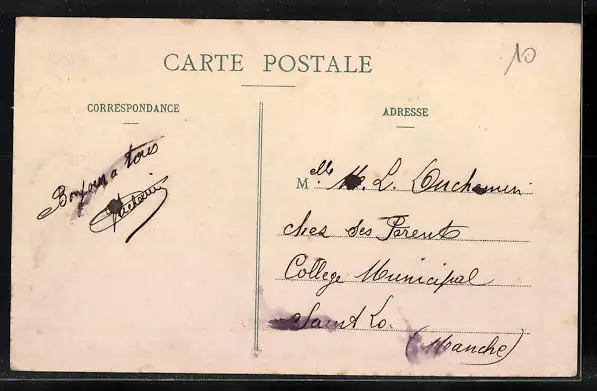 CARTE POSTALE
10
CORRESPONDANCE
ADRESSE
Bonjour a tous
Mlle L. Duchemin
chez ses Parents
College Municipal
Saint Lo.
(Manche)